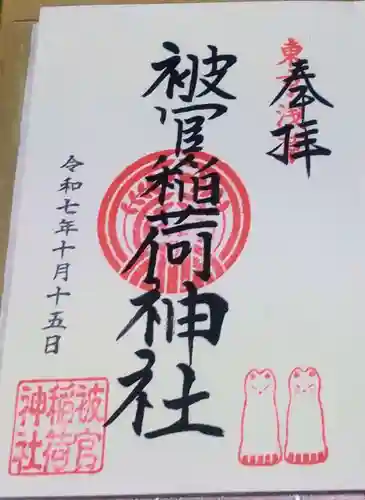 奉拝
東京浅草
被官稲荷神社
令和七年十月十五日
被官
稲荷
神社